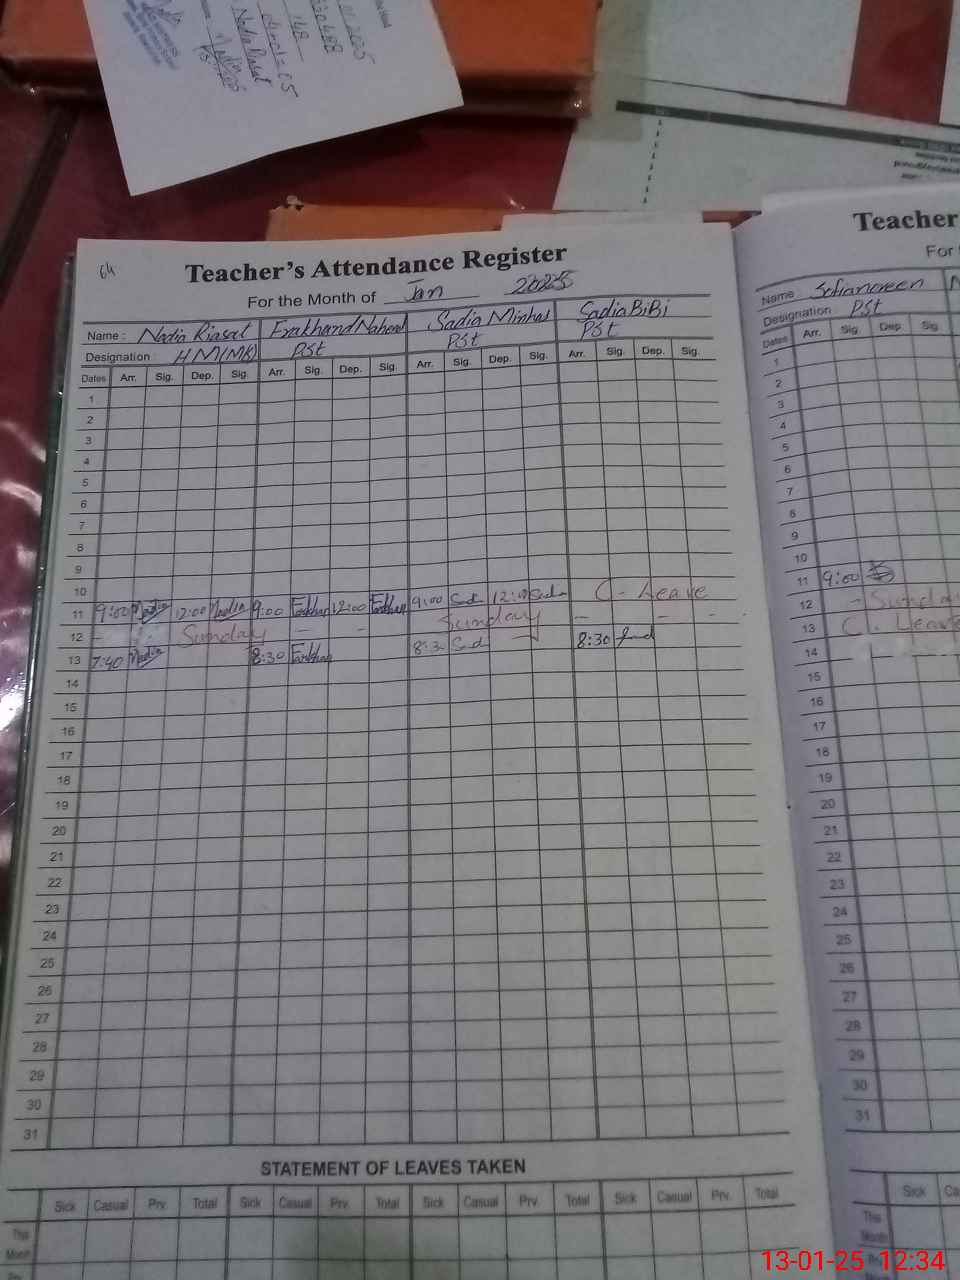 64
Teacher's Attendance Register
For the Month of Jan 2025
Name : Nadia Riasat Frakhand Naheed Sadia Minhas Sadia BiBi
Designation : HM(MK) PSt PSt PSt
Dates Arr. Sig. Dep. Sig. Arr. Sig. Dep. Sig. Arr. Sig. Dep. Sig. Arr. Sig. Dep. Sig.
1
2
3
4
5
6
7
8
9
10
11 9:00 Nadia 12:00 Nadia 9:00 Farkhan 12:00 Farkhan 9:00 Sad 12:00 Sad C- Leave
12 - Sunday - - Sunday - - -
13 7:40 Nadia 8:30 Farkhan 8:30 Sad 8:30
14
15
16
17
18
19
20
21
22
23
24
25
26
27
28
29
30
31
STATEMENT OF LEAVES TAKEN
Sick Casual Prv. Total Sick Casual Prv. Total Sick Casual Prv. Total Sick Casual Prv. Total
This Month
Teacher
For
Name Sofia noreen
Designation : PSt
Dates Arr. Sig. Dep Sig.
1
2
3
4
5
6
7
8
9
10
11 9:00
12 - Sunday
13 C. Leave
14
15
16
17
18
19
20
21
22
23
24
25
26
27
28
29
30
31
Sick Ca
This Month
Nadia Riasat
13-01-25 12:34